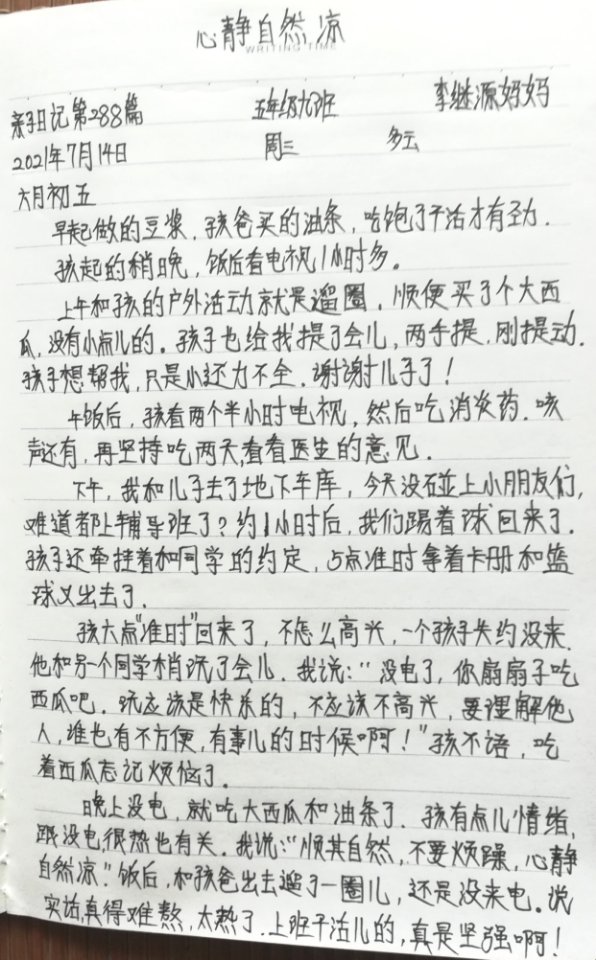 心静自然凉
WRITING TIME
亲子日记第288篇 五年级九班 李继源妈妈
2021年7月14日 周三 多云
六月初五
早起做的豆浆，孩爸买的油条，吃饱了干活才有劲.
孩起的稍晚，饭后看电视1小时多。
上午和孩的户外活动就是遛圈，顺便买了个大西
瓜，没有小点儿的。孩子也给我提了会儿，两手提，刚提动.
孩子想帮我，只是小还力不全，谢谢儿子了！
午饭后，孩看两个半小时电视，然后吃消炎药.咳
声还有，再坚持吃两天，看看医生的意见.
下午，我和儿子去了地下车库，今天没碰上小朋友们，
难道都上辅导班了？约1小时后，我们踢着球回来了.
孩子还牵挂着和同学的约定，5点准时拿着卡册和篮
球又出去了.
孩六点"准时"回来了，不怎么高兴，一个孩子失约没来.
他和另一个同学稍玩了会儿.我说："没电了，你扇扇子吃
西瓜吧.玩应该是快乐的，不应该不高兴，要理解他
人，谁也有不方便，有事儿的时候啊！"孩不语，吃
着西瓜忘记烦恼了.
晚上没电，就吃大西瓜和油条了.孩有点儿情绪，
跟没电很热也有关.我说："顺其自然，不要烦躁，心静
自然凉."饭后，和孩爸出去遛了一圈儿，还是没来电。说
实话，真得难熬，太热了.上班干活儿的，真是坚强啊！